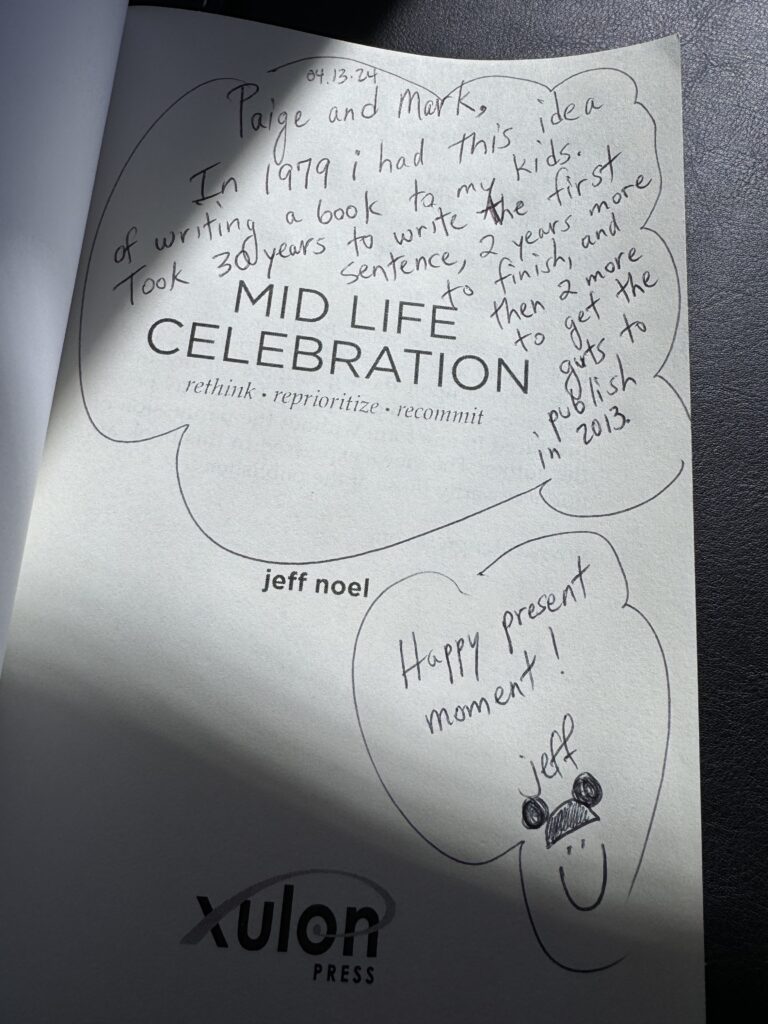 04.13.24
Paige and Mark,
In 1979 i had this idea
of writing a book to my kids.
Took 30 years to write the first
sentence, 2 years more
to finish, and
then 2 more
to get the
guts to
publish
in 2013.
MID LIFE
CELEBRATION
rethink • reprioritize • recommit
jeff noel
Happy present
moment!
jeff
xulon
PRESS